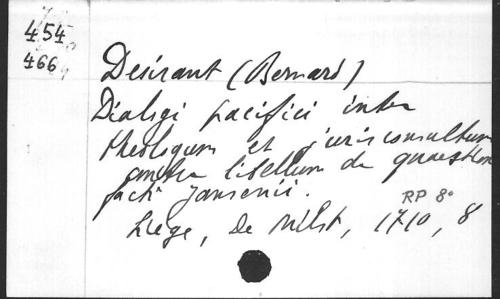 454
466
Desirant (Bernard)
Dialogi pacifici inter
theologum et jurisconsultum
contra libellum de quaestione
facti Jansenii.
RP 8°
Liège, De Milst, 1710, 8